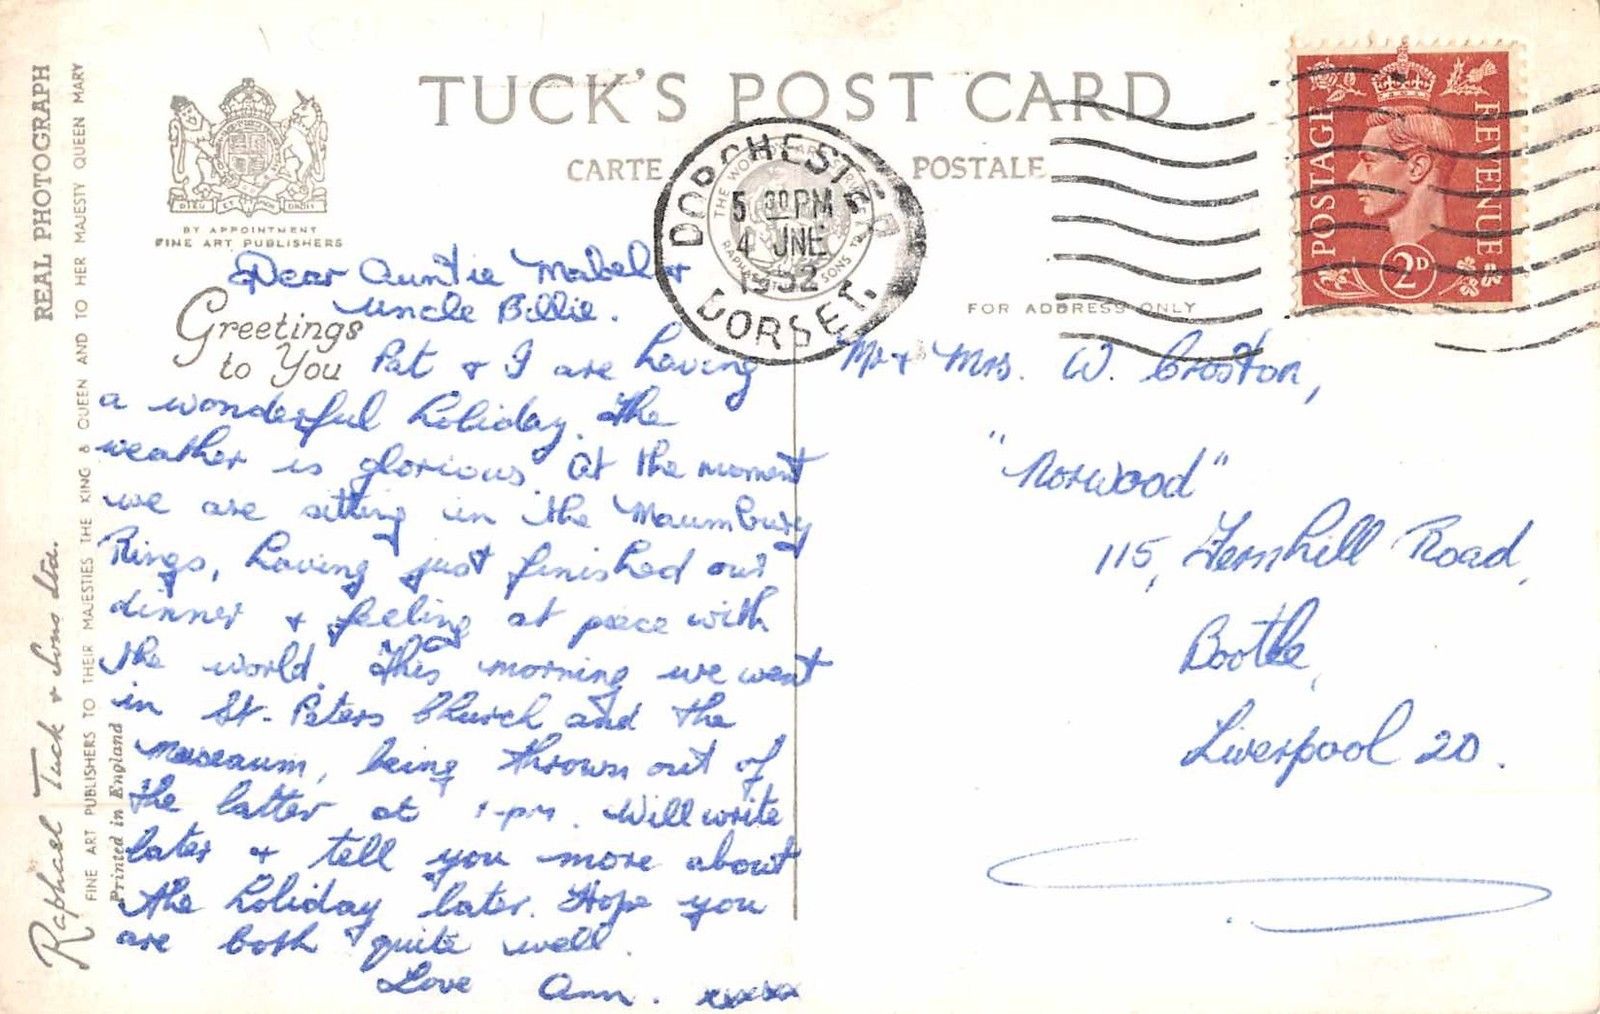 TUCK'S POST CARD
CARTE POSTALE
BY APPOINTMENT
FINE ART PUBLISHERS
DIEU ET MON DROIT
REAL PHOTOGRAPH
Raphael Tuck & Sons Ltd.
FINE ART PUBLISHERS TO THEIR MAJESTIES THE KING & QUEEN AND TO HER MAJESTY QUEEN MARY
Printed in England
Greetings
to You
Dear Auntie Mabel &
Uncle Billie.
Pat & I are having
a wonderful holiday. The
weather is glorious. At the moment
we are sitting in the Maumbury
Rings, having just finished our
dinner & feeling at peece with
the world. This morning we went
in St. Peters Church and the
Museaum, being thrown out of
the latter at 1-pm. Will write
later & tell you more about
the holiday later. Hope you
are both quite well.
Love Ann. xxxxxx
DORCHESTER
5 30 PM
4 JNE
1952
DORSET.
POSTAGE REVENUE
2D
FOR ADDRESS ONLY
Mr & Mrs. W. Croston,
"Norwood"
115, Fernhill Road,
Bootle,
Liverpool 20.